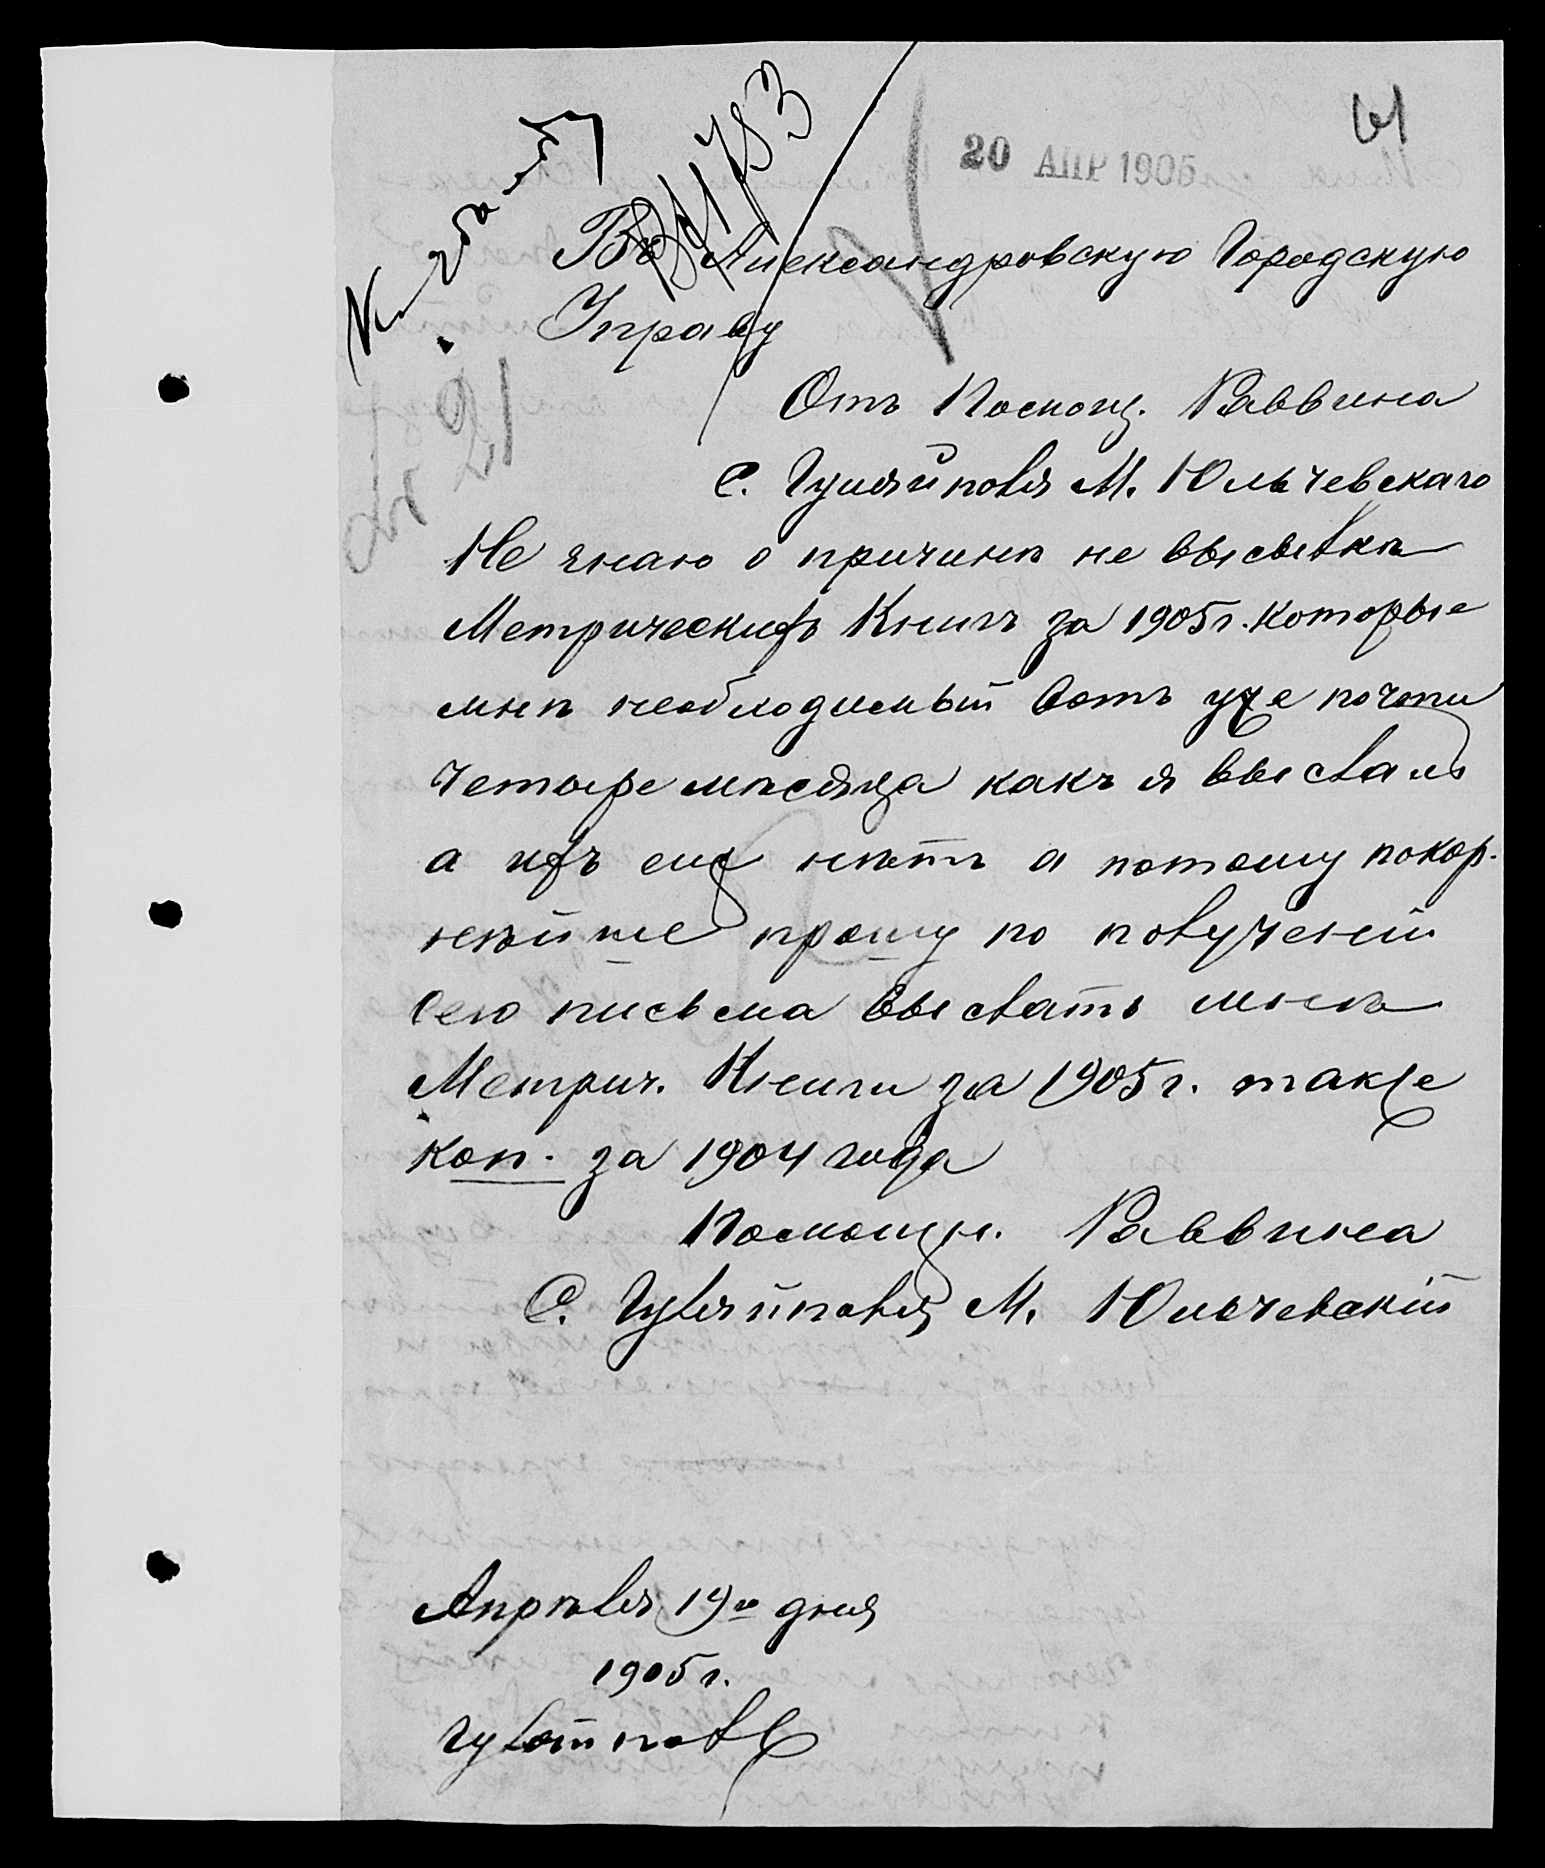 61
20 АПР 1905
№ 1783
Въ Александровскую Городскую
Управу
Отъ Помощ. Раввина
С. Гуляйполя М. Юльчевскаго
№ 21
Не знаю о причинѣ не высылкѣ
Метрическихъ Книгъ за 1905 г. которые
мнѣ необходимый вотъ уже почти
четыре мѣсяца какъ я выслалъ
а ихъ еще нѣтъ а потому покор.
нѣйше прошу по полученіи
сего письма выслать мнѣ
Метрич. Книги за 1905 г. также
коп. за 1904 года
Помощн. Раввина
С. Гуляйполя М. Юльчевскій
Апрѣля 19го дня
1905 г.
Гуляйполе